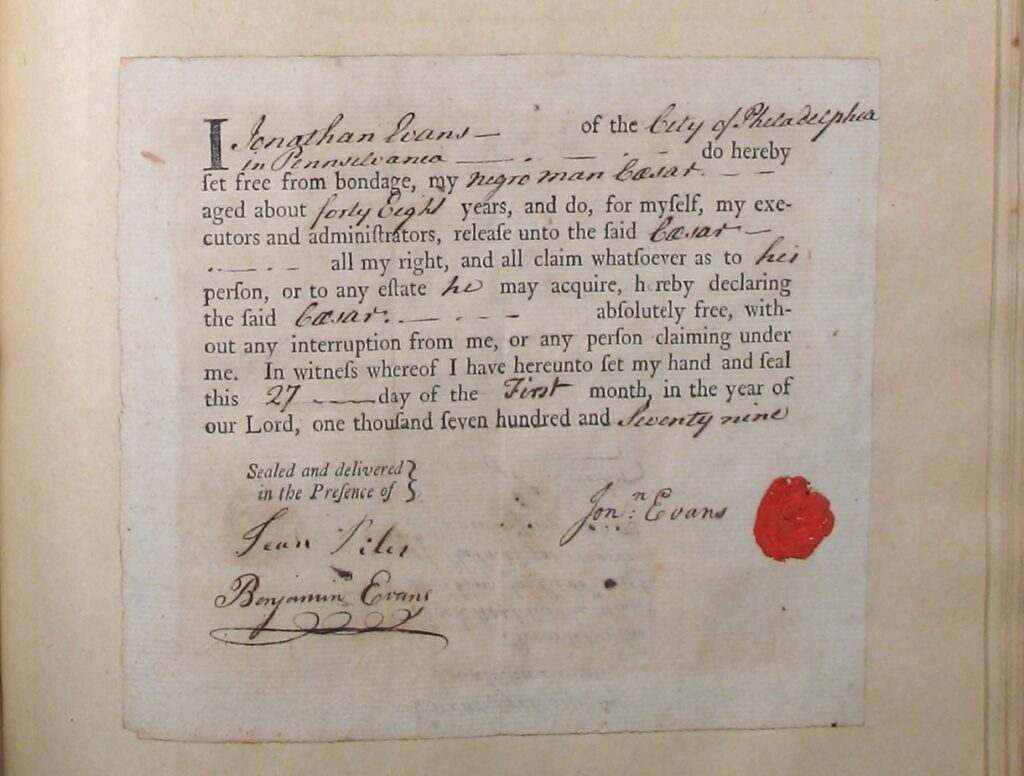 I Jonathan Evans — of the City of Philadelphia
in Pennsilvania — . — . — do hereby
ſet free from bondage, my negro man Cæsar. — —
aged about forty Eight years, and do, for myſelf, my exe-
cutors and adminiſtrators, releaſe unto the ſaid Cæsar —
. — . — all my right, and all claim whatſoever as to his
perſon, or to any eſtate he may acquire, hereby declaring
the ſaid Cæsar. — . — . — abſolutely free, with-
out any interruption from me, or any perſon claiming under
me. In witneſs whereof I have hereunto ſet my hand and ſeal
this 27 — day of the First month, in the year of
our Lord, one thouſand ſeven hundred and Seventy nine
Sealed and delivered }
in the Preſence of }
Jonⁿ: Evans
Benjamin Evans